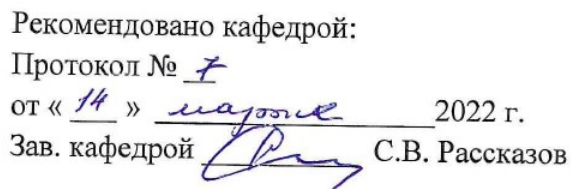 Рекомендовано кафедрой:
Протокол № 7
от « 14 » марта 2022 г.
Зав. кафедрой С.В. Рассказов